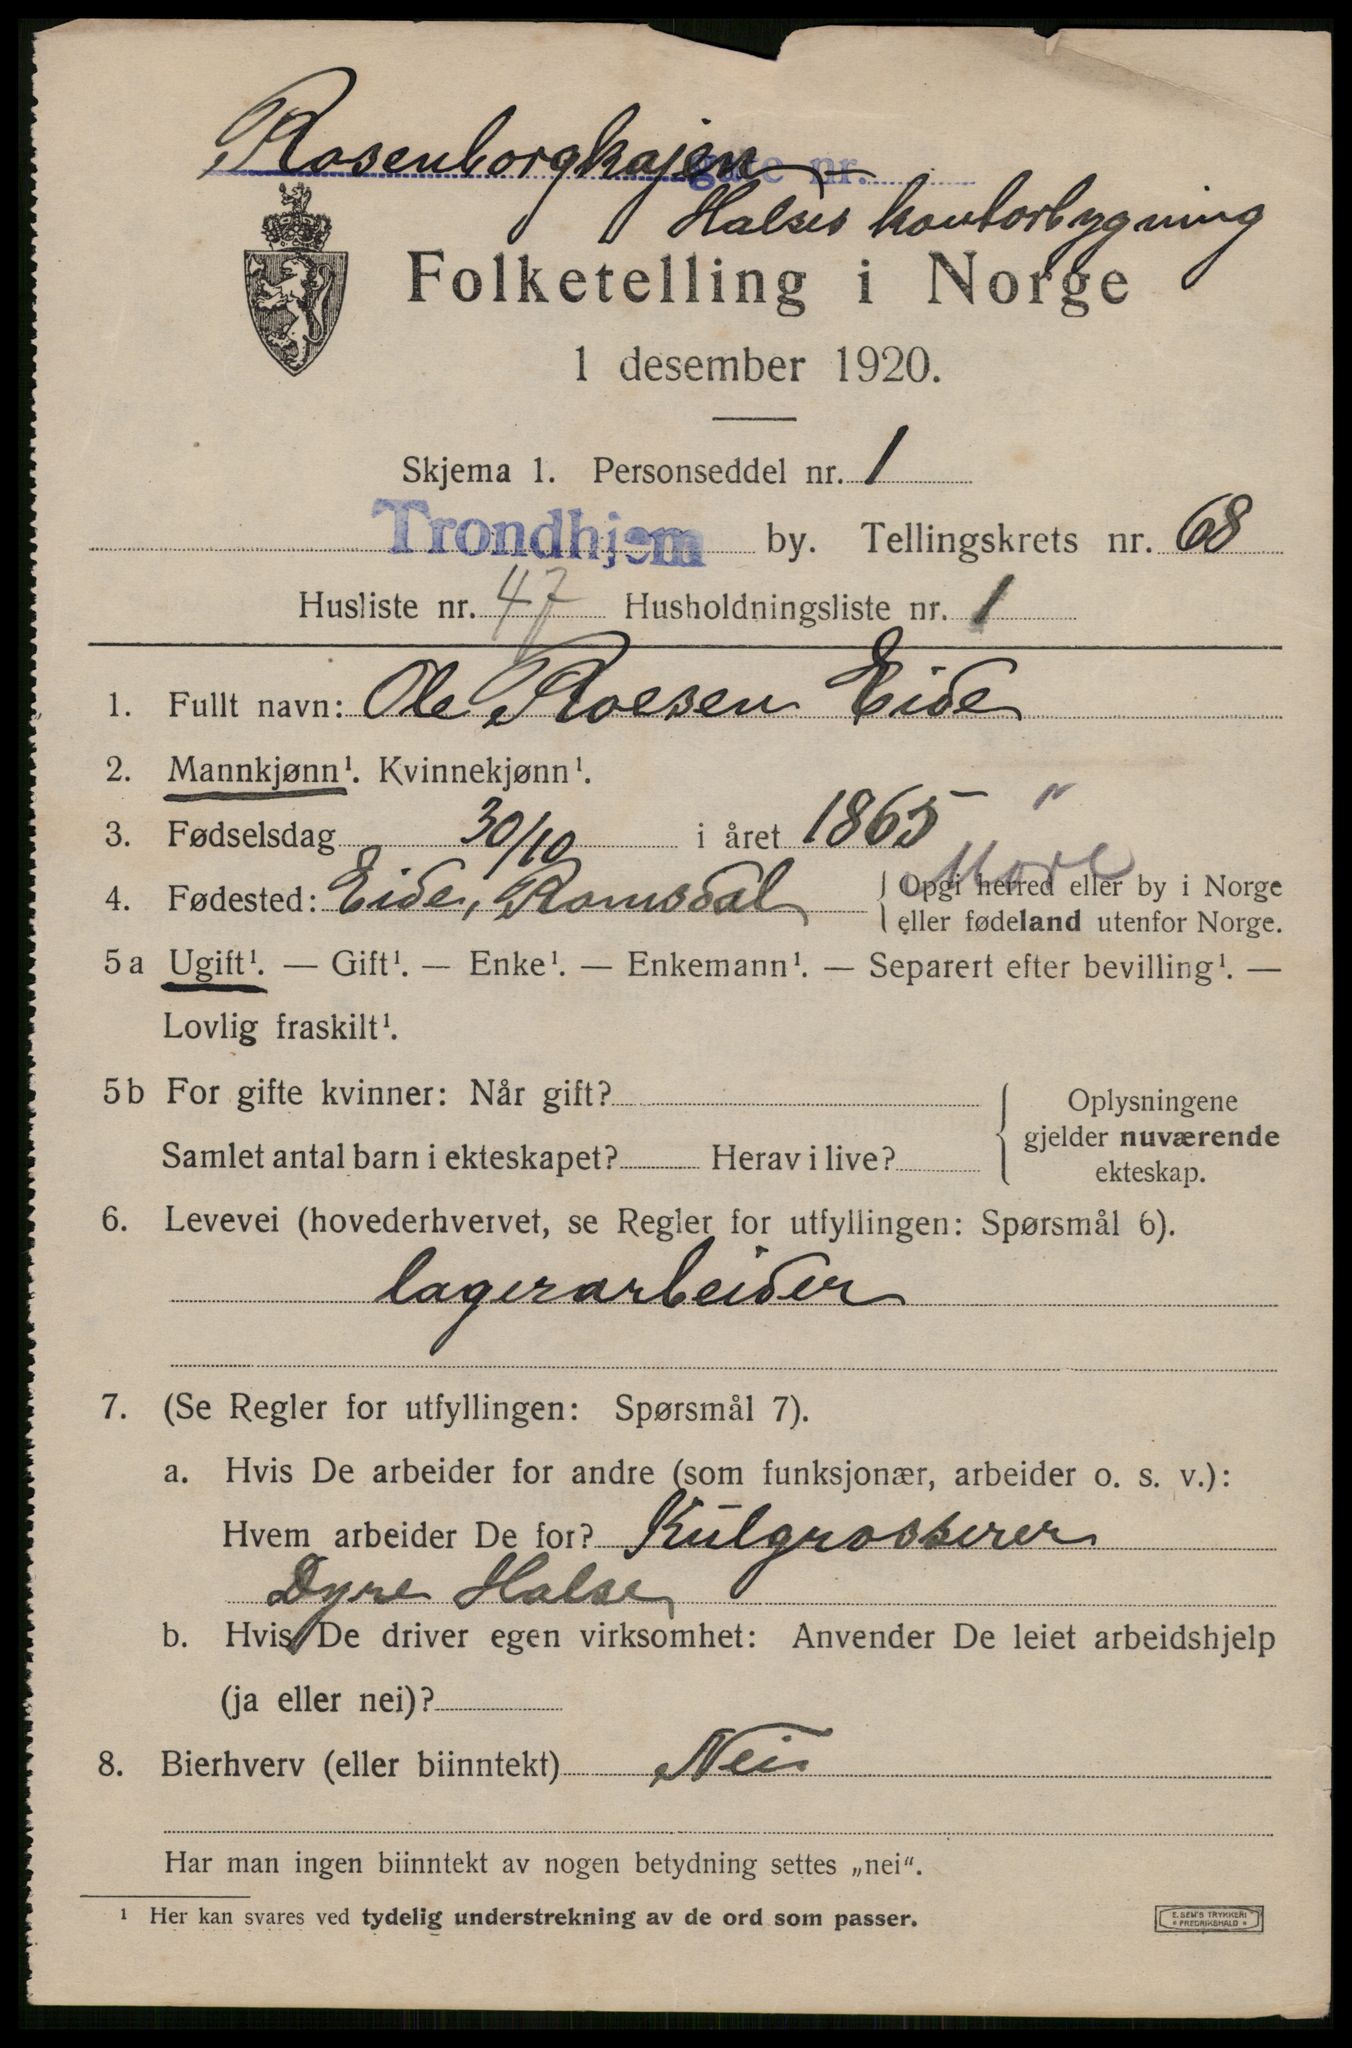 Rosenborgkajen gate nr.
Halses kontorbygning
Folketelling i Norge
1 desember 1920.
Skjema 1. Personseddel nr. 1
Trondhjem by. Tellingskrets nr. 68
Husliste nr. 47 Husholdningsliste nr. 1
1. Fullt navn: Ole Roesen Eide
2. Mannkjønn¹. Kvinnekjønn¹.
3. Fødselsdag 30/10 i året 1865 "
Møre
4. Fødested: Eide, Romsdal Opgi herred eller by i Norge
eller fødeland utenfor Norge.
5a Ugift¹. — Gift¹. — Enke¹. — Enkemann¹. — Separert efter bevilling¹. —
Lovlig fraskilt¹.
5b For gifte kvinner: Når gift?
Samlet antal barn i ekteskapet? Herav i live?
Oplysningene
gjelder nuværende
ekteskap.
6. Levevei (hovederhvervet, se Regler for utfyllingen: Spørsmål 6).
lagerarbeider
7. (Se Regler for utfyllingen: Spørsmål 7).
a. Hvis De arbeider for andre (som funksjonær, arbeider o. s. v.):
Hvem arbeider De for? Kulgrosserer
Dyre Halse
b. Hvis De driver egen virksomhet: Anvender De leiet arbeidshjelp
(ja eller nei)?
8. Bierhverv (eller biinntekt) Nei
Har man ingen biinntekt av nogen betydning settes „nei“.
¹ Her kan svares ved tydelig understrekning av de ord som passer.
E. SEM'S TRYKKERI
FREDRIKSHALD